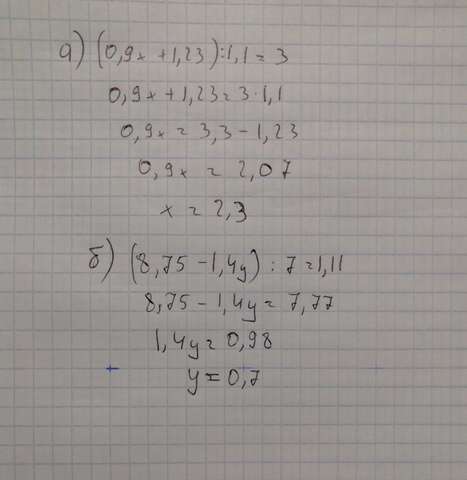 а) (0,9x + 1,23) : 1,1 = 3
0,9x + 1,23 = 3 · 1,1
0,9x = 3,3 - 1,23
0,9x = 2,07
x = 2,3
б) (8,75 - 1,4y) : 7 = 1,11
8,75 - 1,4y = 7,77
1,4y = 0,98
y = 0,7